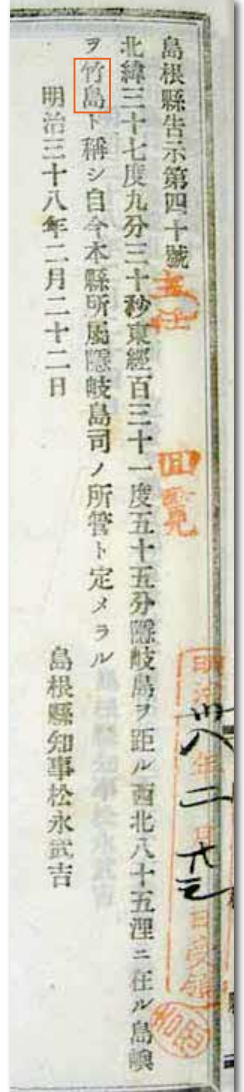 島根縣告示第四十號
北緯三十七度九分三十秒東經百三十一度五十五分隱岐島ヲ距ル西北八十五浬ニ在ル島嶼
ヲ竹島ト稱シ自今本縣所屬隱岐島司ノ所管ト定メラル
明治三十八年二月二十二日
島根縣知事松永武吉
主任
回覽